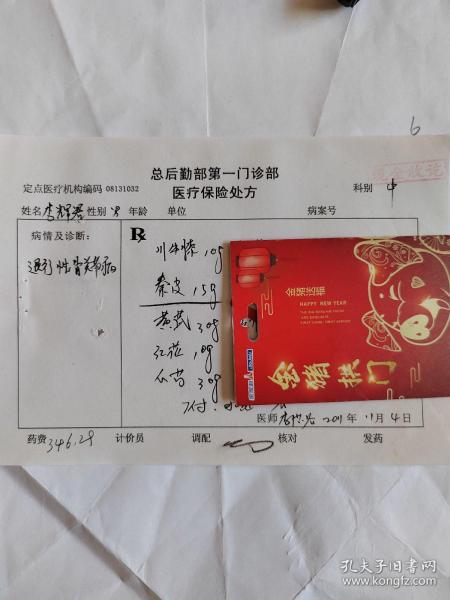 6
总后勤部第一门诊部
医疗保险处方
定点医疗机构编码 08131032
科别 中
现金收讫
姓名 李辉 性别 年龄 单位 病案号
病情及诊断：
退行性骨关节病
R
川牛膝 10g
秦艽 15g
黄芪 30g
红花 10g
30g
7付
金猪送福
HAPPY NEW YEAR
金猪拱门
医师 2011年11月4日
药费 346.29 计价员 调配 核对 发药
孔夫子旧书网
www.kongfz.com